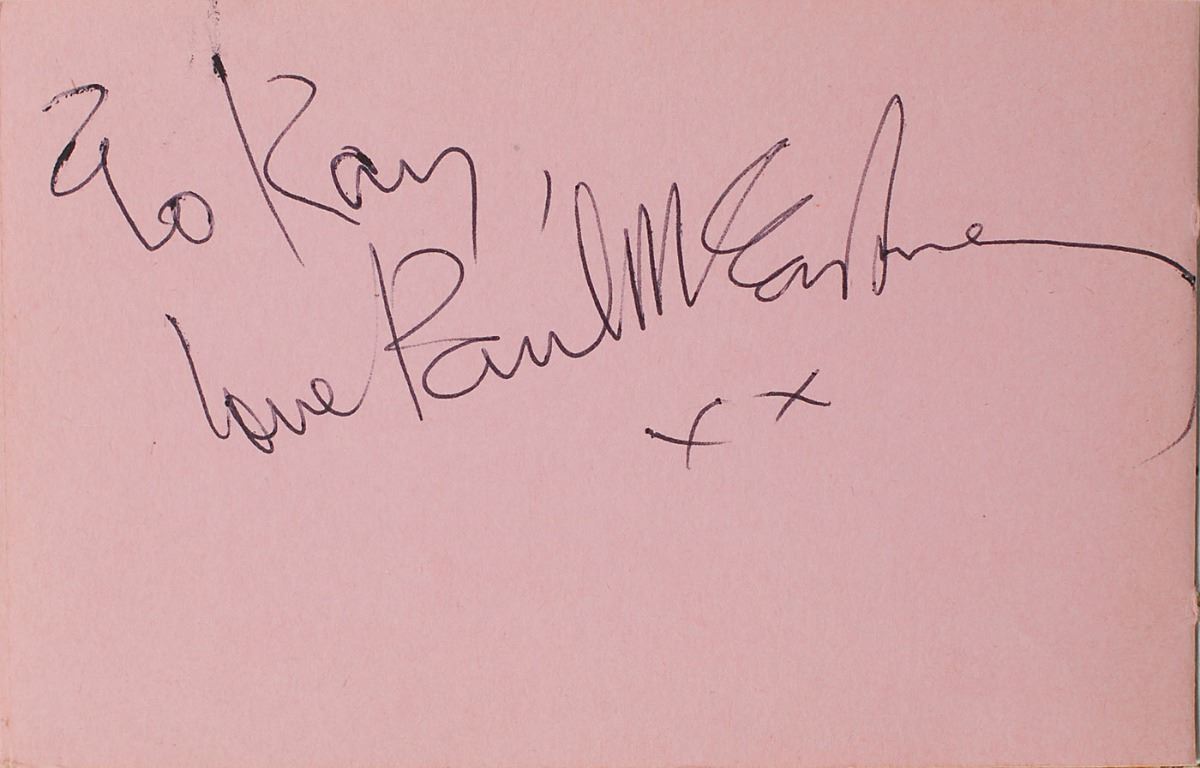 To Ray
love Paul McCartney
xx